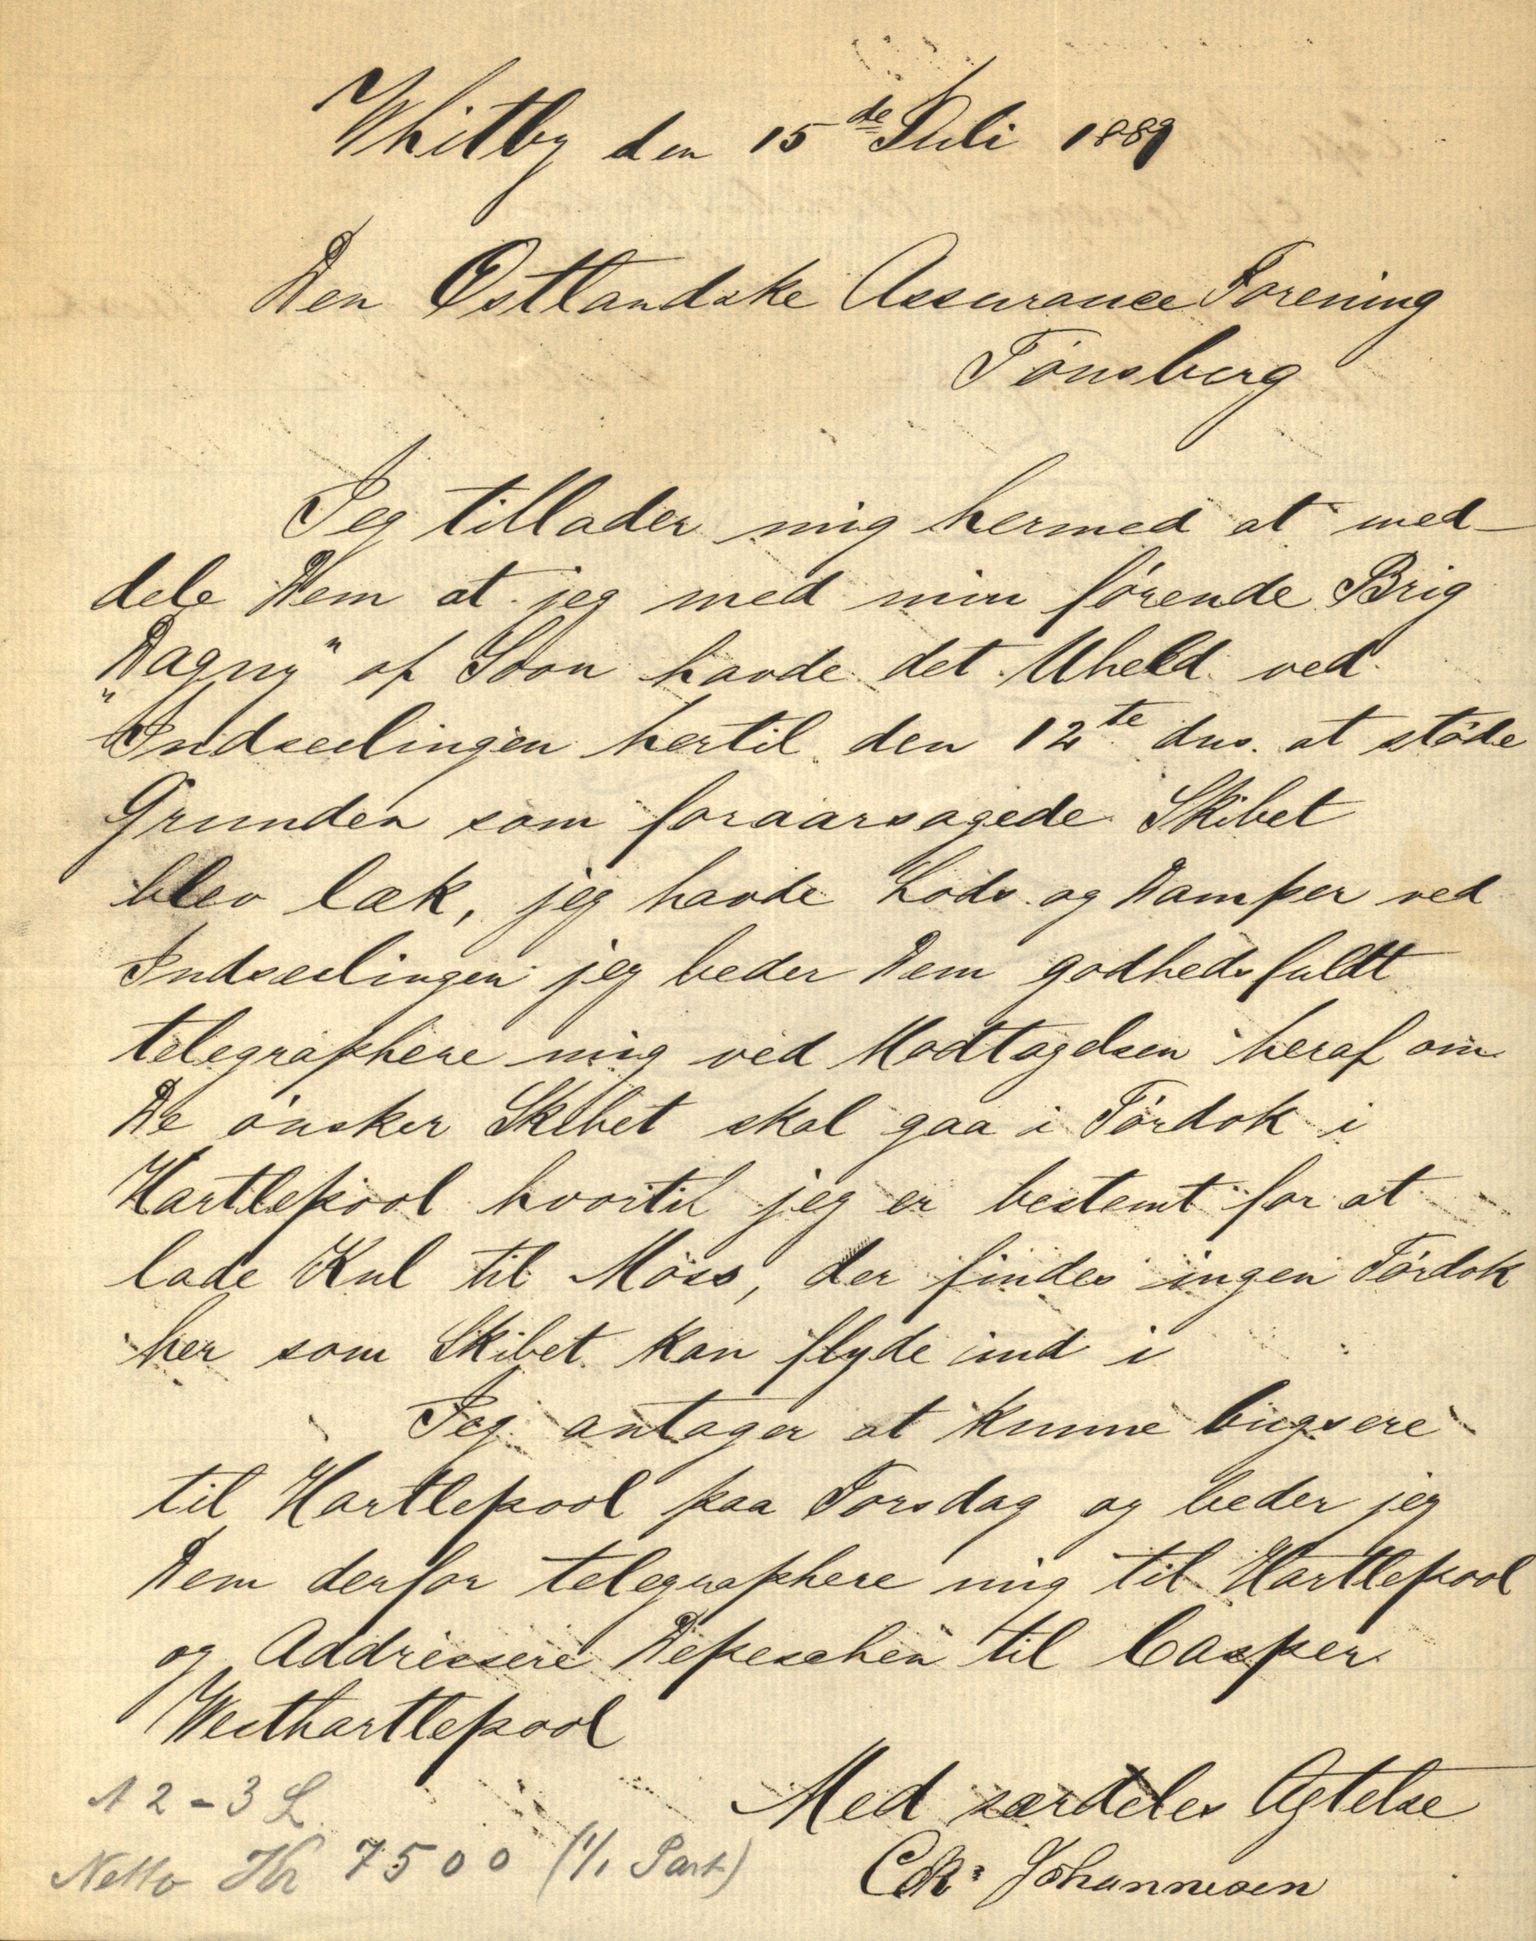 Whitby den 15de Juli 1889
Den Østlandske Assurance Forening
Tönsberg
Jeg tillader mig hermed at med-
dele Dem at jeg med min förende Brig
"Dagny" af Soon havde det Uheld ved
Indseilingen hertil den 12te dns. at støde
Grunden som foraarsagede Skibet
blev læk, jeg havde Lods og Damper ved
Indseilingen jeg beder Dem godhedsfuldt
telegraphere mig ved Modtagelsen heraf om
De önsker Skibet skal gaa i Tördok i
Hartlepool hvortil jeg er bestemt for at
lade Kul til Moss, der findes ingen Tördok
her som Skibet kan flyde ind i
Jeg antager at kunne bugsere
til Hartlepool paa Torsdag og beder jeg
Dem derfor telegraphere mig til Hartlepool
og Addressere Depeschen til Casper
Westhartlepool
Med særdeles Agtelse
Chr. Johannesen
A 2 - 3 L
Netto Kr 7500 (1/1 Part)